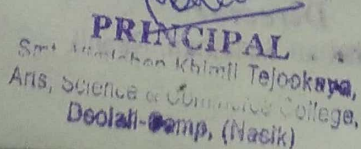 PRINCIPAL
Smt. Khimji Tejookaya,
Arts, Science & Commerce College,
Deolali-Camp, (Nasik)